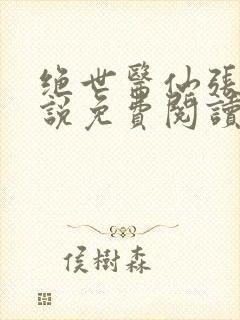 絕世醫仙張
說免費閱讀
侯樹森